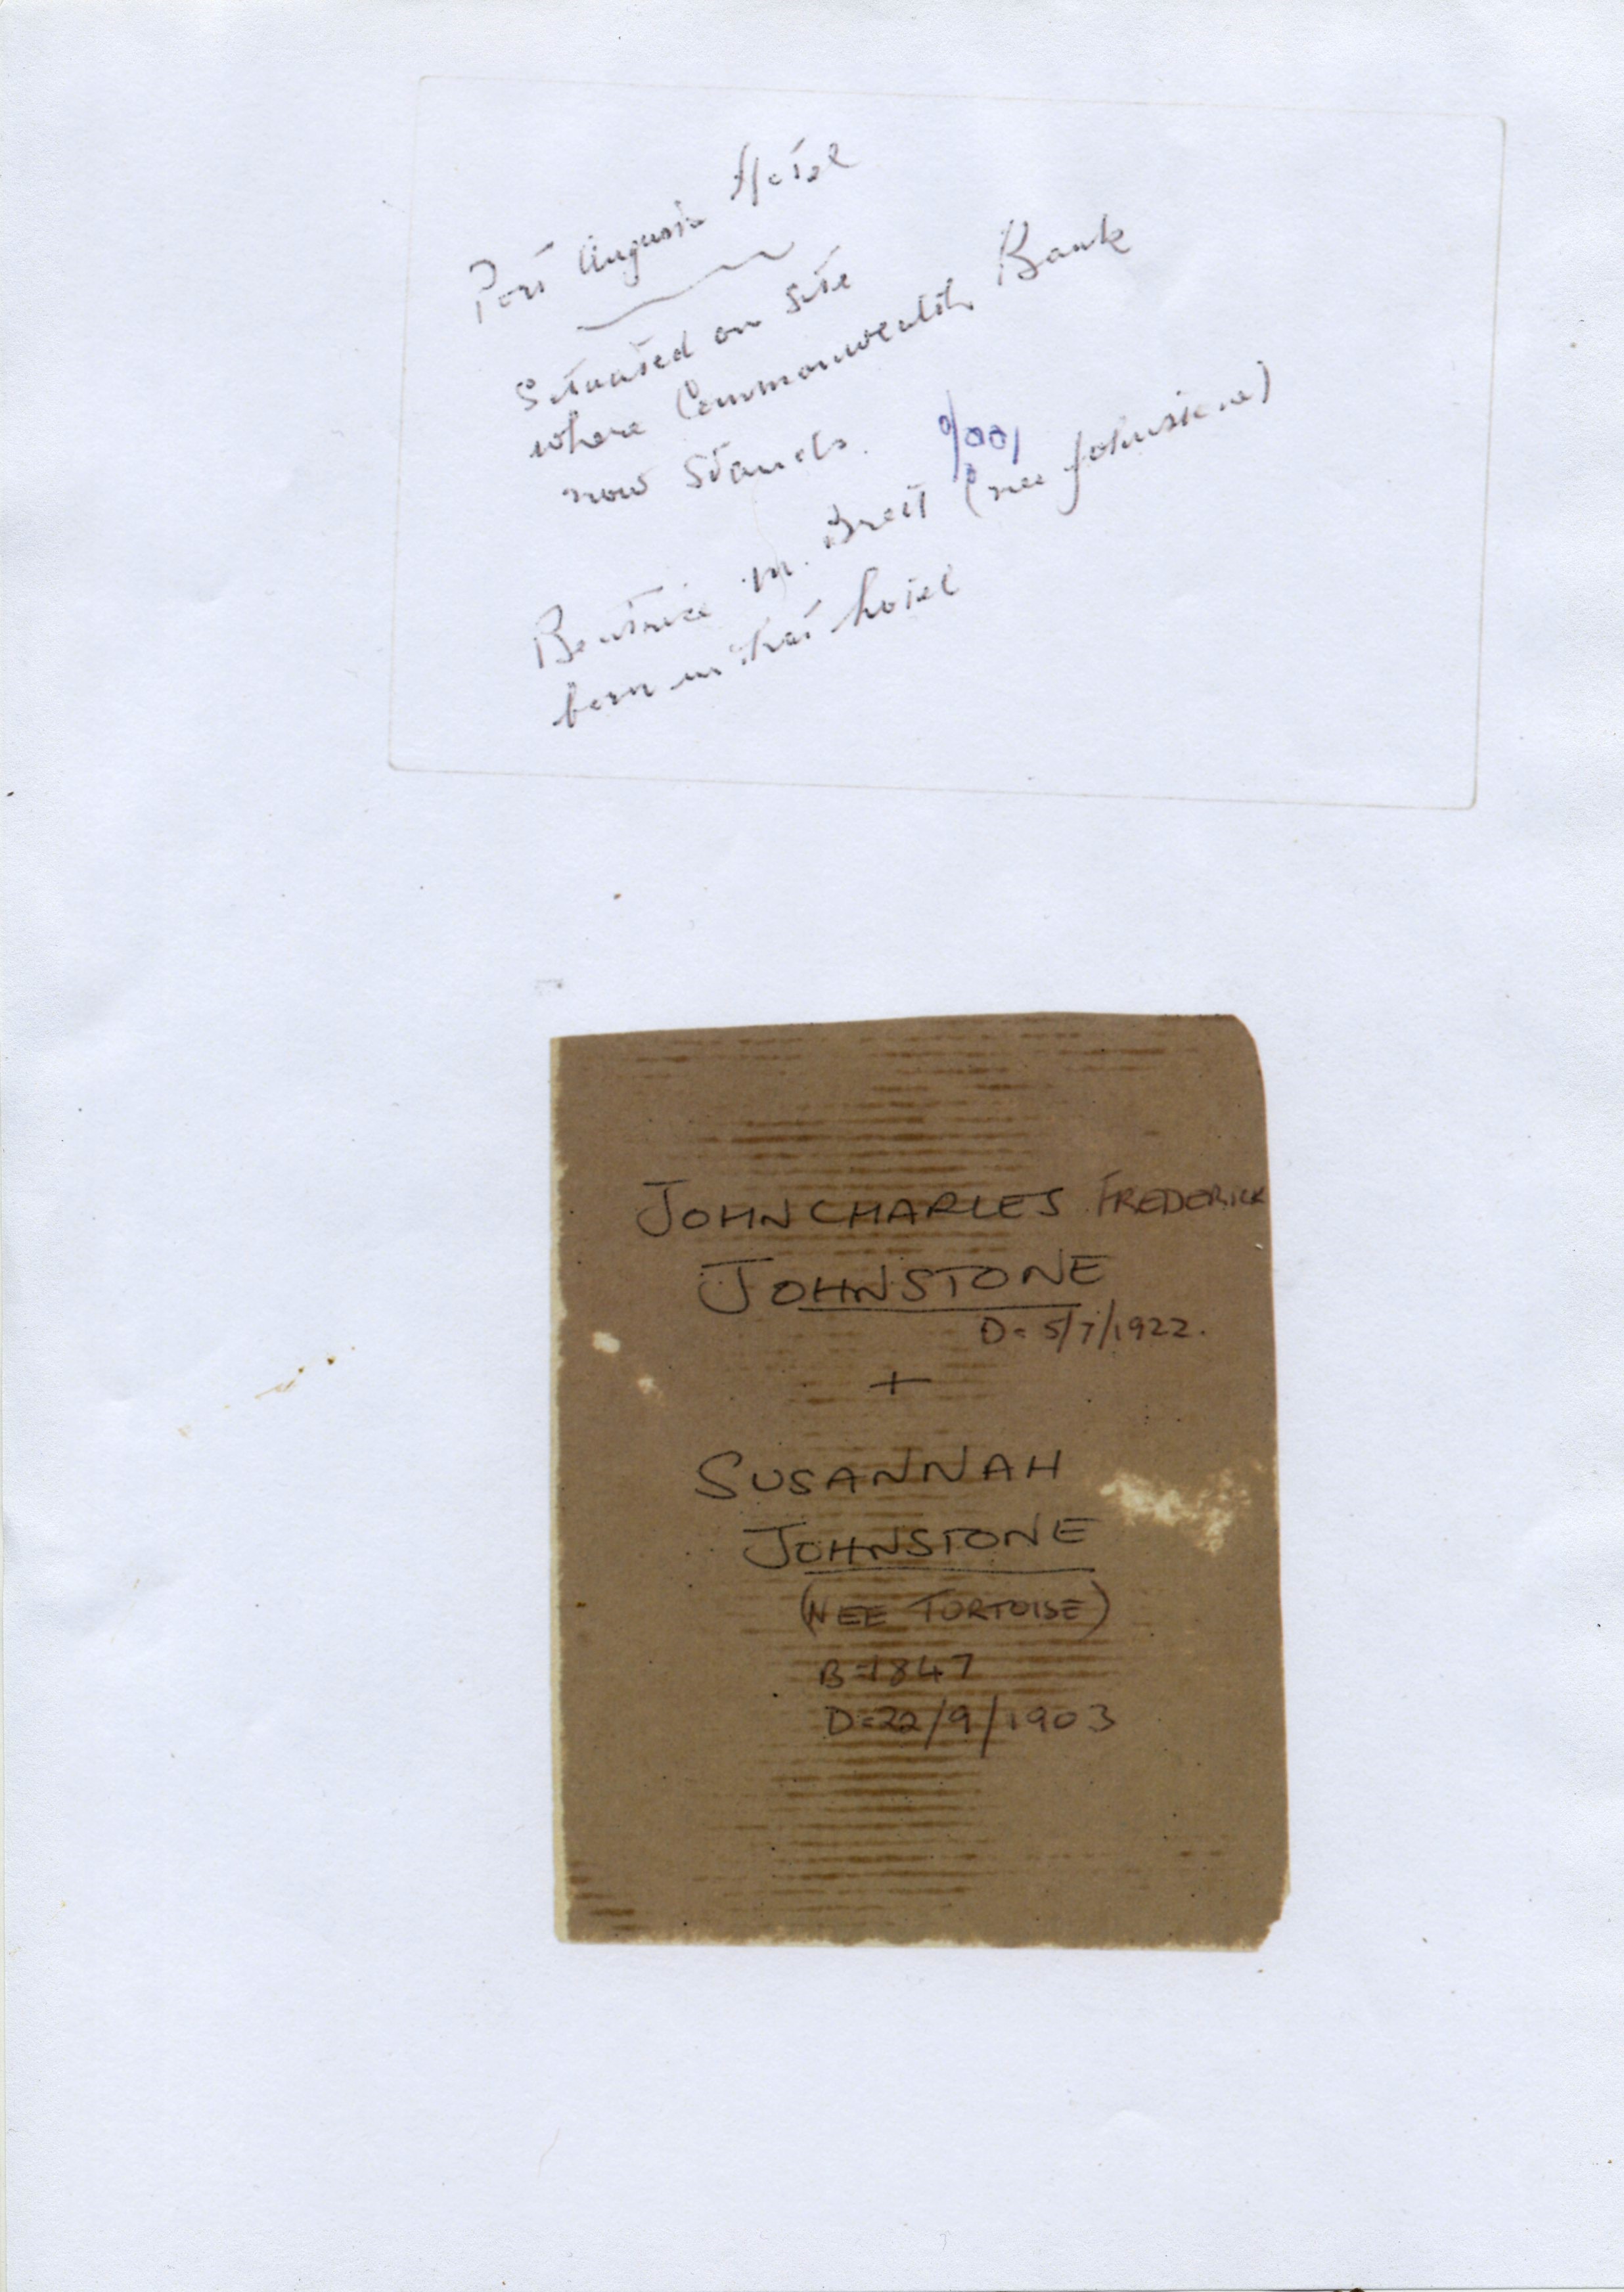 Port Augusta Hotel
Situated on site
where Commonwealth Bank
now stands.
Beatrice M. Breit (nee Johnstone)
born in that hotel
JOHN CHARLES FREDERICK
JOHNSTONE
D= 5/7/1922.
+
SUSANNAH
JOHNSTONE
(NEE TORTOISE)
B=1847
D=22/9/1903